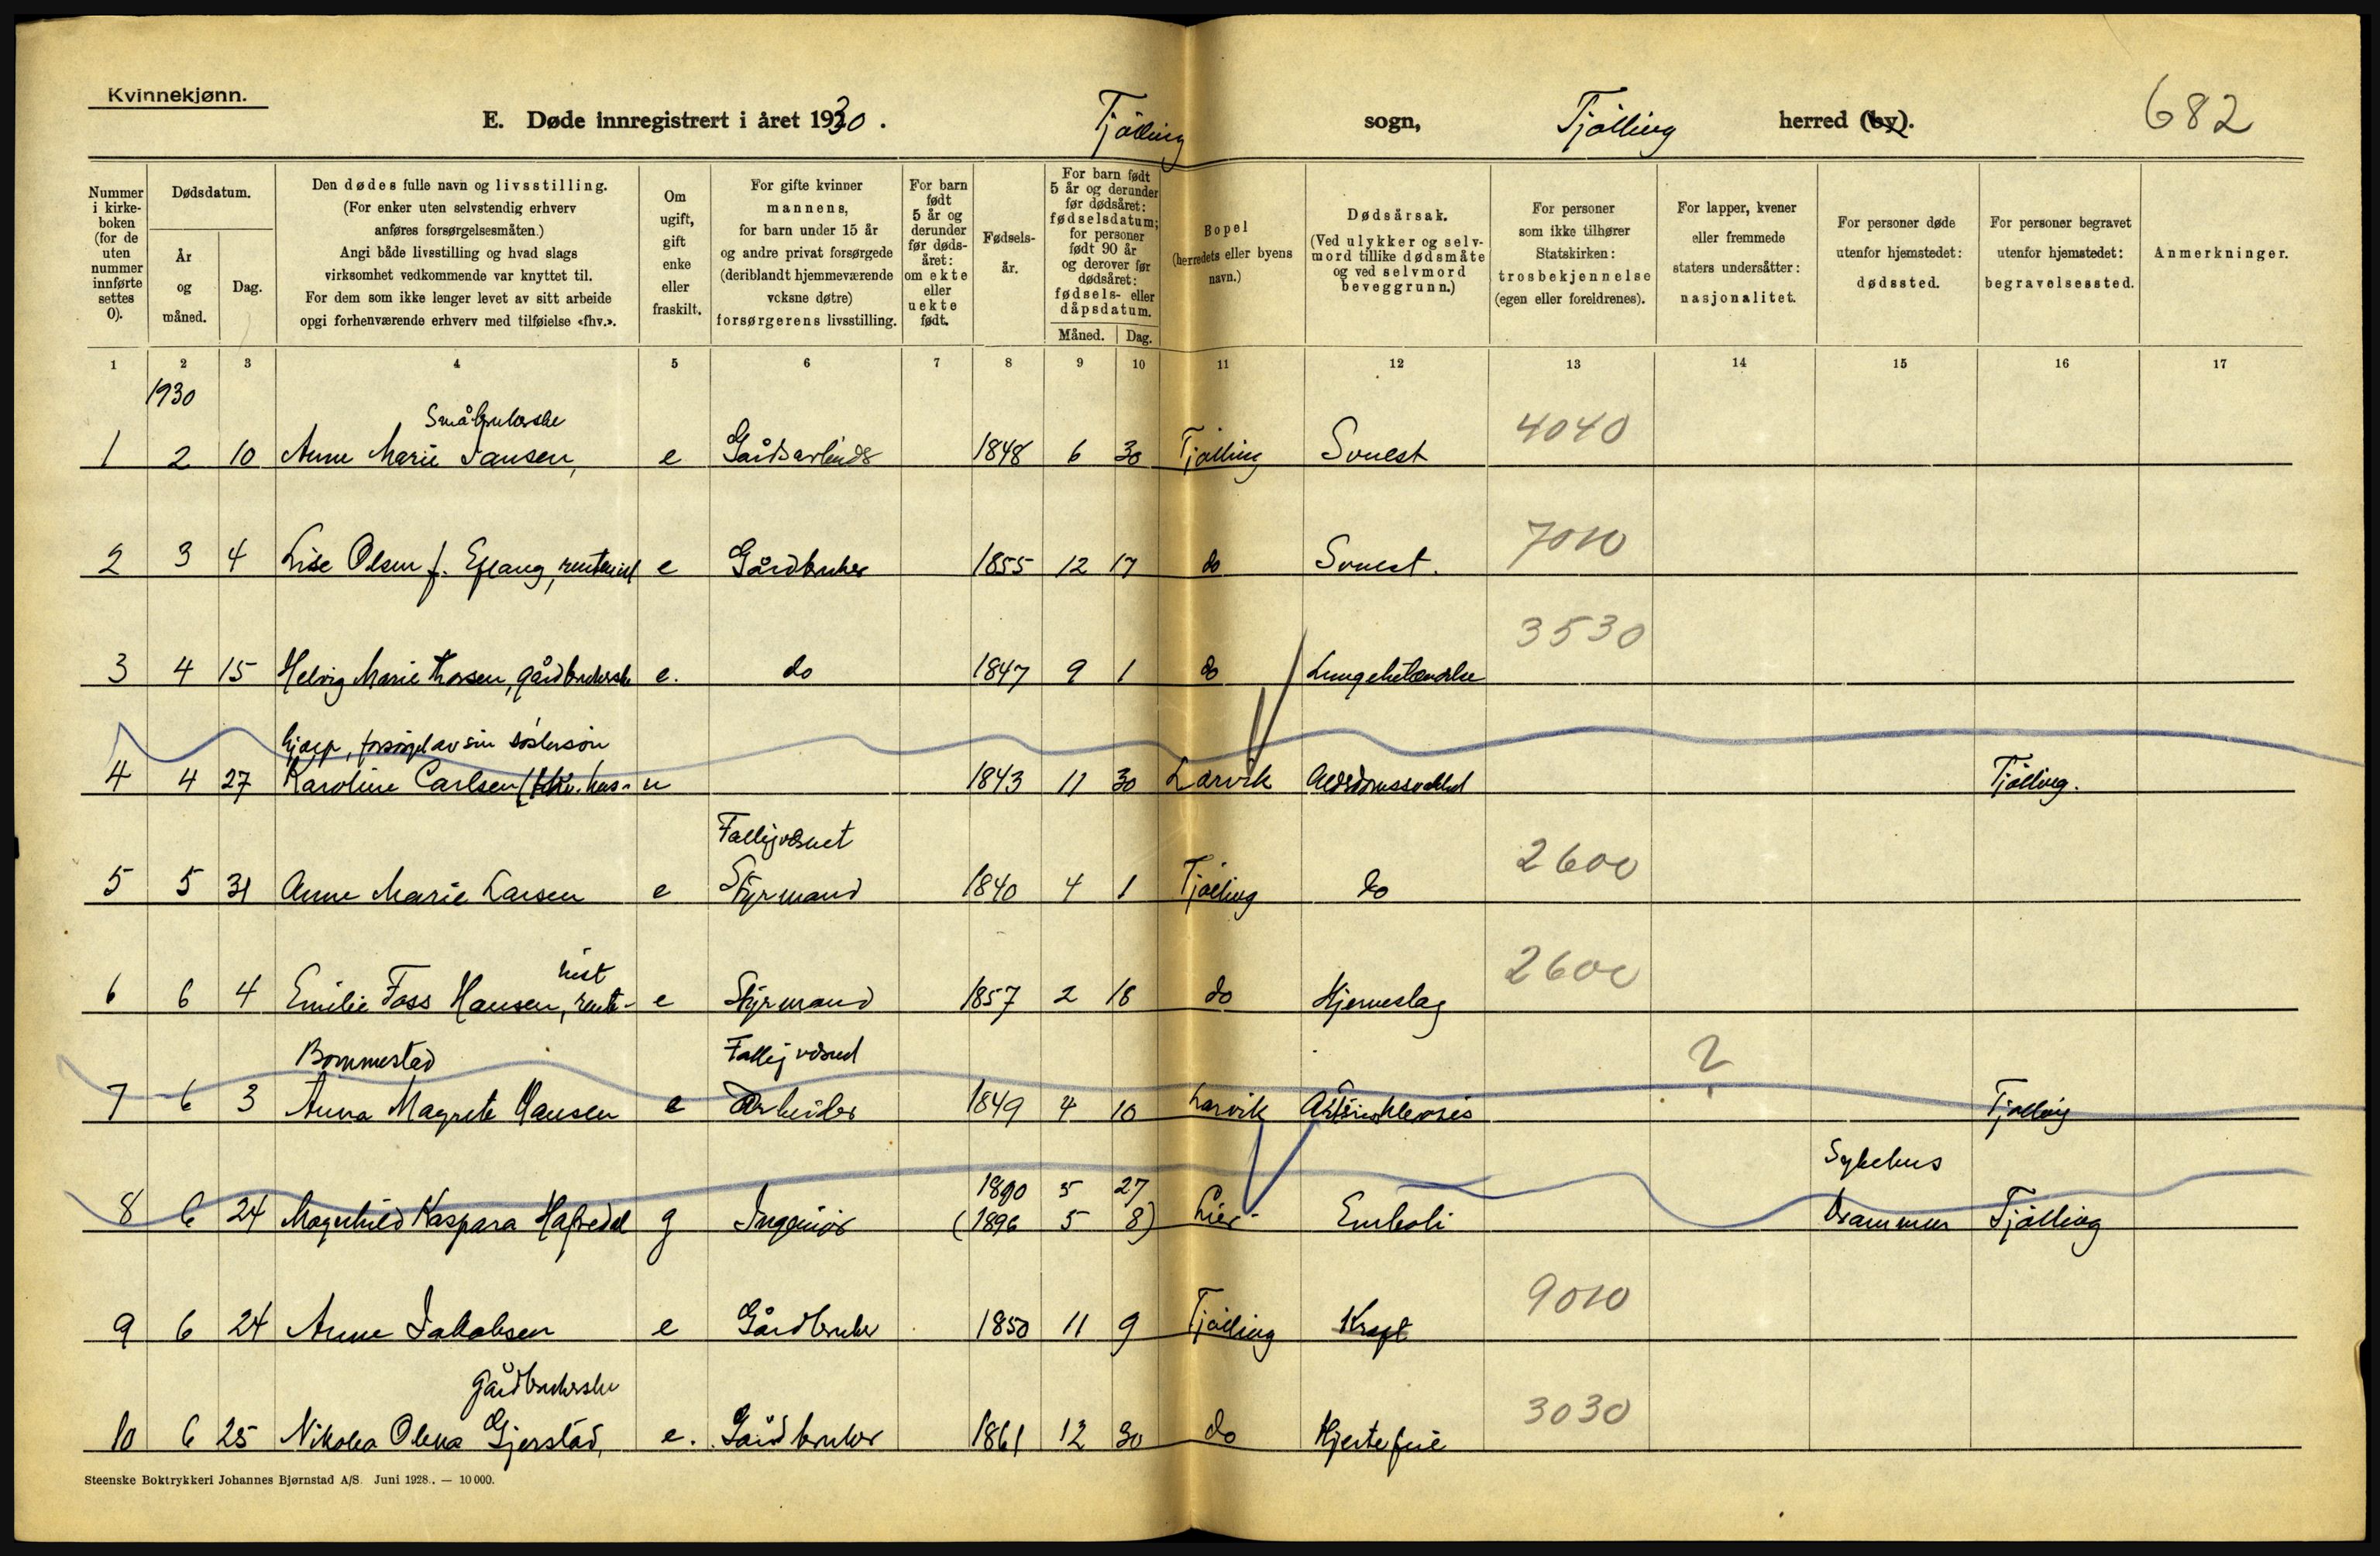 Kvinnekjønn.
E. Døde innregistrert i året 1930. Tjölling sogn, Tjölling herred (by). 682
Nummer i kirke-boken (for de uten nummer innførte settes 0).
Dødsdatum.
År og måned.
Dag.
Den dødes fulle navn og livsstilling.
(For enker uten selvstendig erhverv anføres forsørgelsesmåten.)
Angi både livsstilling og hvad slags virksomhet vedkommende var knyttet til.
For dem som ikke lenger levet av sitt arbeide opgi forhenværende erhverv med tilføielse «fhv.».
Om ugift, gift enke eller fraskilt.
For gifte kvinner mannens, for barn under 15 år og andre privat forsørgede (deriblandt hjemmeværende voksne døtre) forsørgerens livsstilling.
For barn født 5 år og derunder før døds-året: om ekte eller uekte født.
Fødsels-år.
For barn født 5 år og derunder før dødsåret: fødselsdatum; for personer født 90 år og derover før dødsåret: fødsels- eller dåpsdatum.
Måned. Dag.
Bopel (herredets eller byens navn.)
Dødsårsak.
(Ved ulykker og selv-mord tillike dødsmåte og ved selvmord beveggrunn.)
For personer som ikke tilhører Statskirken: trosbekjennelse (egen eller foreldrenes).
For lapper, kvener eller fremmede staters undersåtter: nasjonalitet.
For personer døde utenfor hjemstedet: dødssted.
For personer begravet utenfor hjemstedet: begravelsessted.
Anmerkninger.
1 2 3 4 5 6 7 8 9 10 11 12 13 14 15 16 17
1930
Småbrukerske
1 2 10 Anne Marie Jansen, e Gårdsarbeider 1848 6 30 Tjölling Svulst 4040
2 3 4 Lise Olsen f. Eftang, e Gårdbruker 1855 12 17 do Svulst. 7010
3 4 15 Helvig Marie Thorsen, gårdbrukerske e. do 1847 9 1 do Lungebetændelse 3530
hjælp, forsörget av sin söstersön
4 4 27 Karoline Carlsen (fhv. hus- u 1843 11 30 Larvik Alderdomssvakhet Tjölling.
Fattigvesnet
5 5 31 Anne Marie Larsen e Styrmand 1840 4 1 Tjölling do 2600
nist
6 6 4 Emilie Foss Hansen, rente- e Styrmand 1857 2 18 do Hjerneslag 2600
Bommestad Fattigvesnet
7 6 3 Anna Magrete Hansen e Arbeider 1849 4 10 Larvik ? Tjölling
1890 5 27 Sykehus
8 6 24 Magnhild Kaspara Hafredal g Ingeniör (1896 5 8) Lier Emboli Drammen Tjölling
9 6 24 Anne Jakobsen e Gårdbruker 1850 11 9 Tjölling Kreft 9010
Gårdbrukerske
10 6 25 Nikolea Olena Gjerstad, e. Gårdbruker 1861 12 30 do Hjertefeil 3030
Steenske Boktrykkeri Johannes Bjørnstad A/S. Juni 1928. — 10 000.